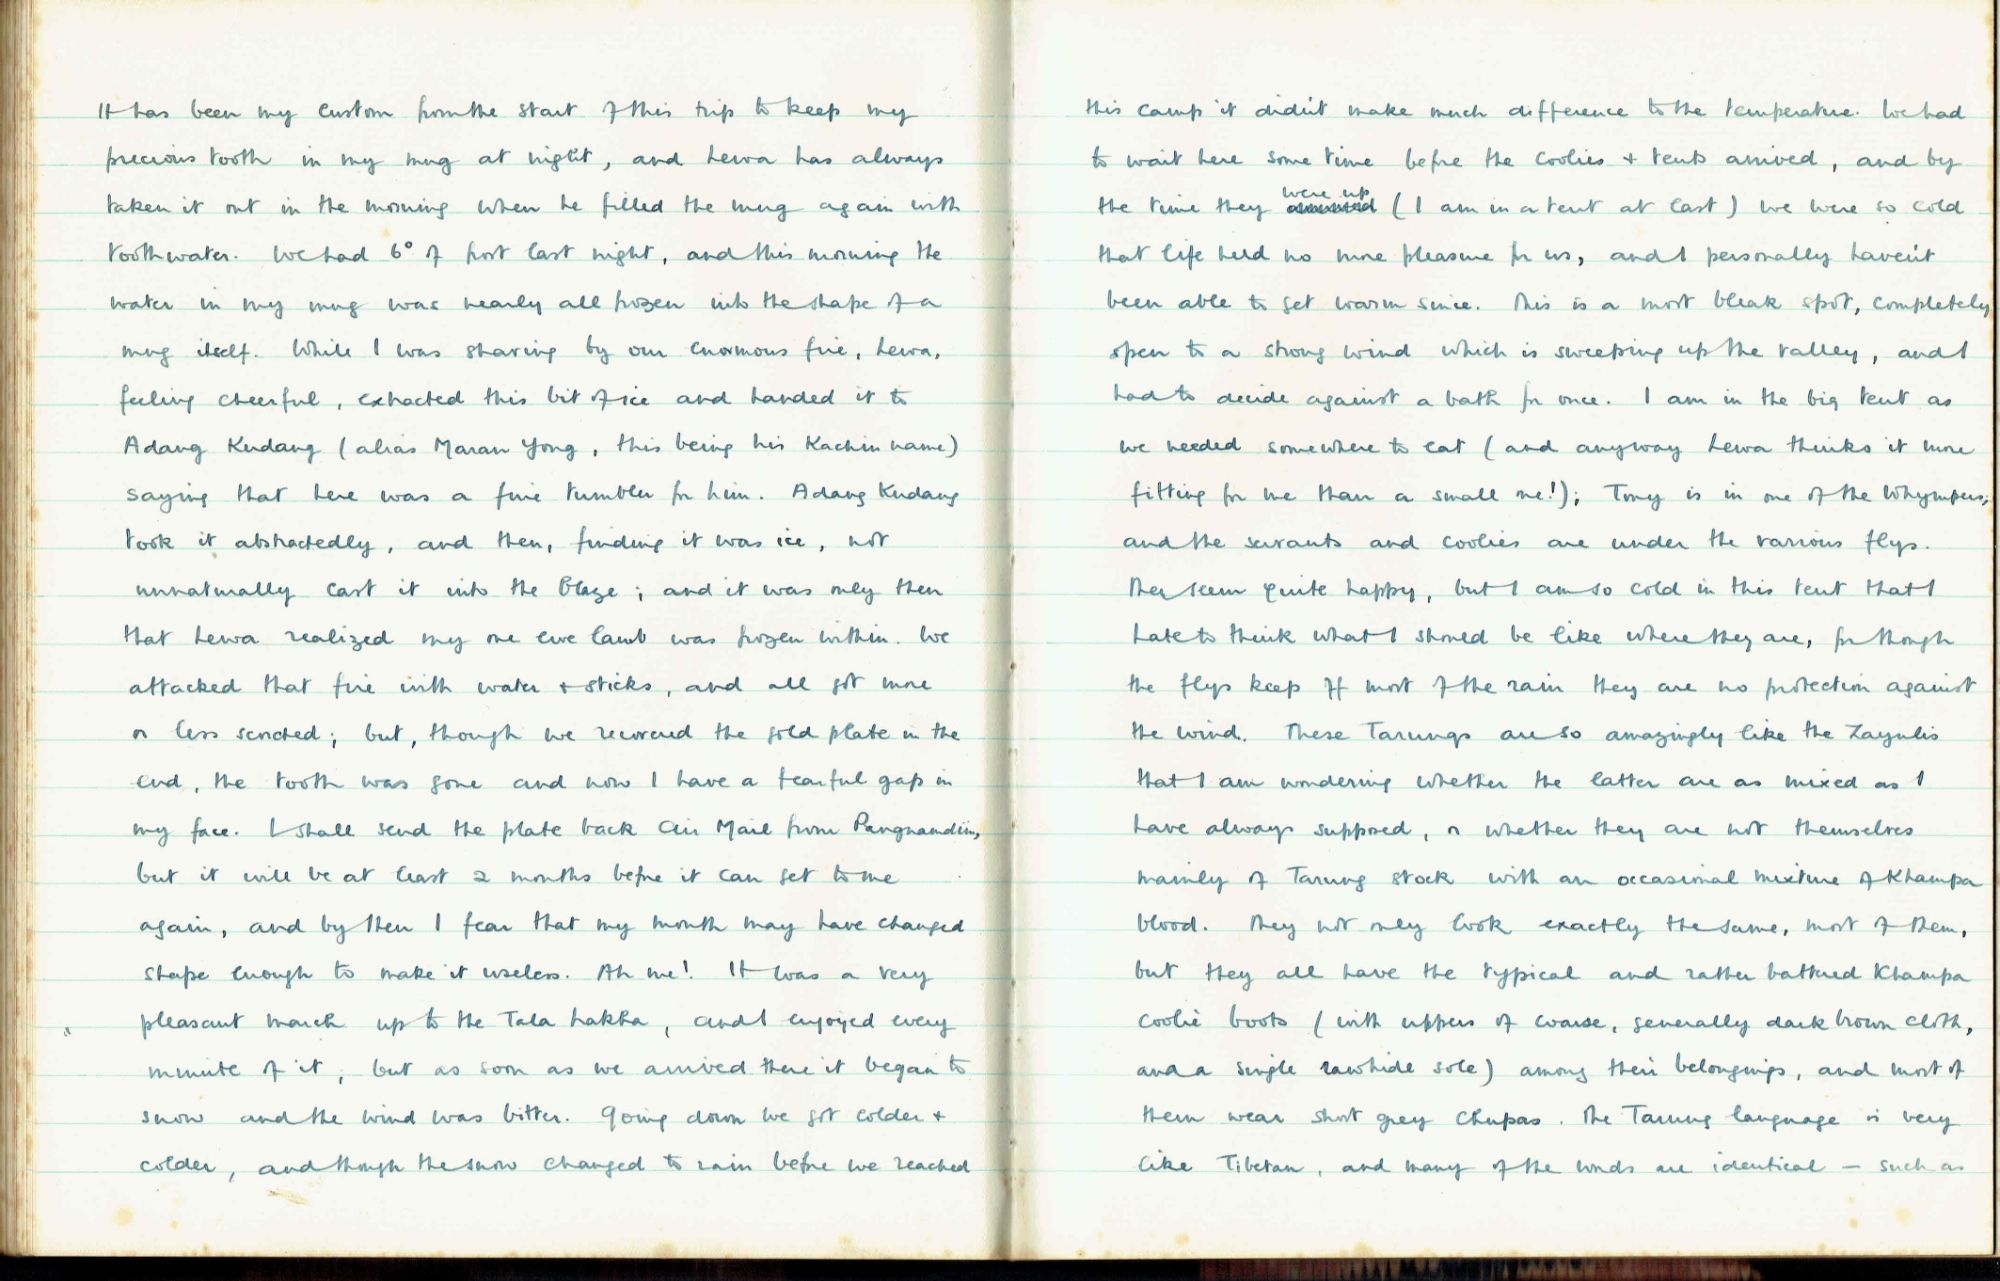 It has been my custom from the start of this trip to keep my
precious tooth in my mug at night, and Lewa has always
taken it out in the morning when he filled the mug again with
toothwater. We had 6° of frost last night, and this morning the
water in my mug was nearly all frozen into the shape of a
mug itself. While I was shaving by our enormous fire, Lewa,
feeling cheerful, extracted this bit of ice and handed it to
Adang Kudang (alias Maran Yong, this being his Kachin name)
saying that here was a fine tumbler for him. Adang Kudang
took it abstractedly, and then, finding it was ice, not
unnaturally cast it into the blaze; and it was only then
that Lewa realized my one ewe lamb was frozen within. We
attacked that fire with water + sticks, and all got more
or less scorched; but, though we recovered the gold plate in the
end, the tooth was gone and now I have a fearful gap in
my face. I shall send the plate back Air Mail from Pangnamdim,
but it will be at least 2 months before it can get to me
again, and by then I fear that my mouth may have changed
shape enough to make it useless. Ah me! It was a very
pleasant march up to the Tala Lakha, and I enjoyed every
minute of it, but as soon as we arrived there it began to
snow and the wind was bitter. Going down we got colder +
colder, and though the snow changed to rain before we reached
this camp it didn't make much difference to the temperature. We had
to wait here some time before the coolies + tents arrived, and by
the time they were up (I am in a tent at last) we were so cold
that life held no more pleasure for us, and I personally haven't
been able to get warm since. This is a most bleak spot, completely
open to a strong wind which is sweeping up the valley, and I
had to decide against a bath for once. I am in the big tent as
we needed somewhere to eat (and anyway Lewa thinks it more
fitting for me than a small one!); Tony is in one of the Whympers;
and the servants and coolies are under the various flys.
They seem quite happy, but I am so cold in this tent that I
hate to think what I should be like where they are, for though
the flys keep off most of the rain they are no protection against
the wind. These Tarungs are so amazingly like the Zayulis
that I am wondering whether the latter are as mixed as I
have always supposed, or whether they are not themselves
mainly of Tarung stock with an occasional mixture of Khampa
blood. They not only look exactly the same, most of them,
but they all have the typical and rather battered Khampa
coolie boots (with uppers of coarse, generally dark brown cloth,
and a single rawhide sole) among their belongings, and most of
them wear short grey chupas. The Tarung language is very
like Tibetan, and many of the words are identical – such as